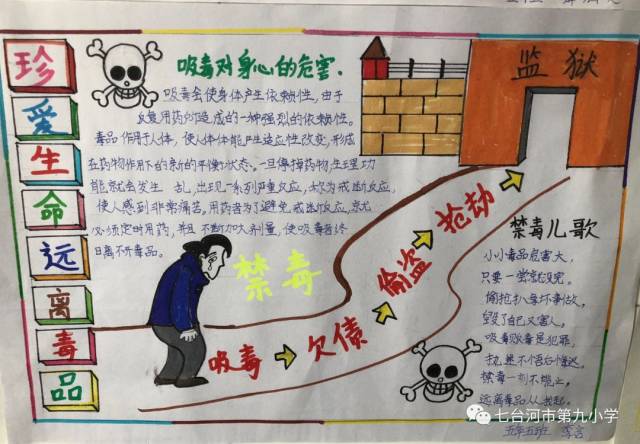 珍
爱
生
命
远
离
毒
品
吸毒对身心的危害.
吸毒会使身体产生依赖性,由于
反复用药所造成的一种强烈的依赖性。
毒品作用于人体,使人体体能产生适应性改变,形成
在药物作用下的新的平衡状态。一旦停掉药物,生理功
能就会发生 乱,出现一系列严重反应,称为戒断反应,
使人感到非常痛苦。用药者为了避免戒断反应,就
必须定时用药,并且不断加大剂量,使吸毒者终
日离不开毒品
监狱
禁毒
吸毒
欠债
偷盗
抢劫
禁毒儿歌
小小毒品危害大,
只要一尝就没完。
偷抢扒 坏事做,
毁了自己又害人。
吸毒贩毒是犯罪,
执迷不悟后悔迟。
禁毒一刻不能止,
远离毒品从我起。
七台河市第九小学
五年五班